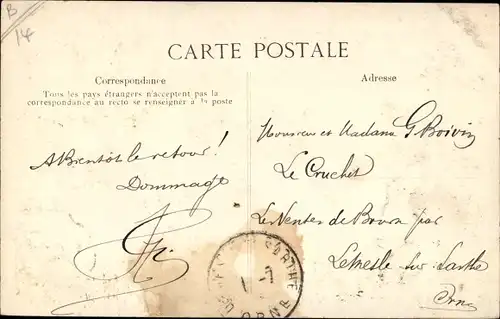 B
14
CARTE POSTALE
Correspondance
Tous les pays étrangers n'acceptent pas la
correspondance au recto se renseigner à la poste
A Bientôt le retour!
Dommage
Adresse
Monsieur et Madame G Boivin
Le Cruchet
Les Ventes de Bourse par
Lemesle sur Sarthe
Orne
SARTHE
ORNE